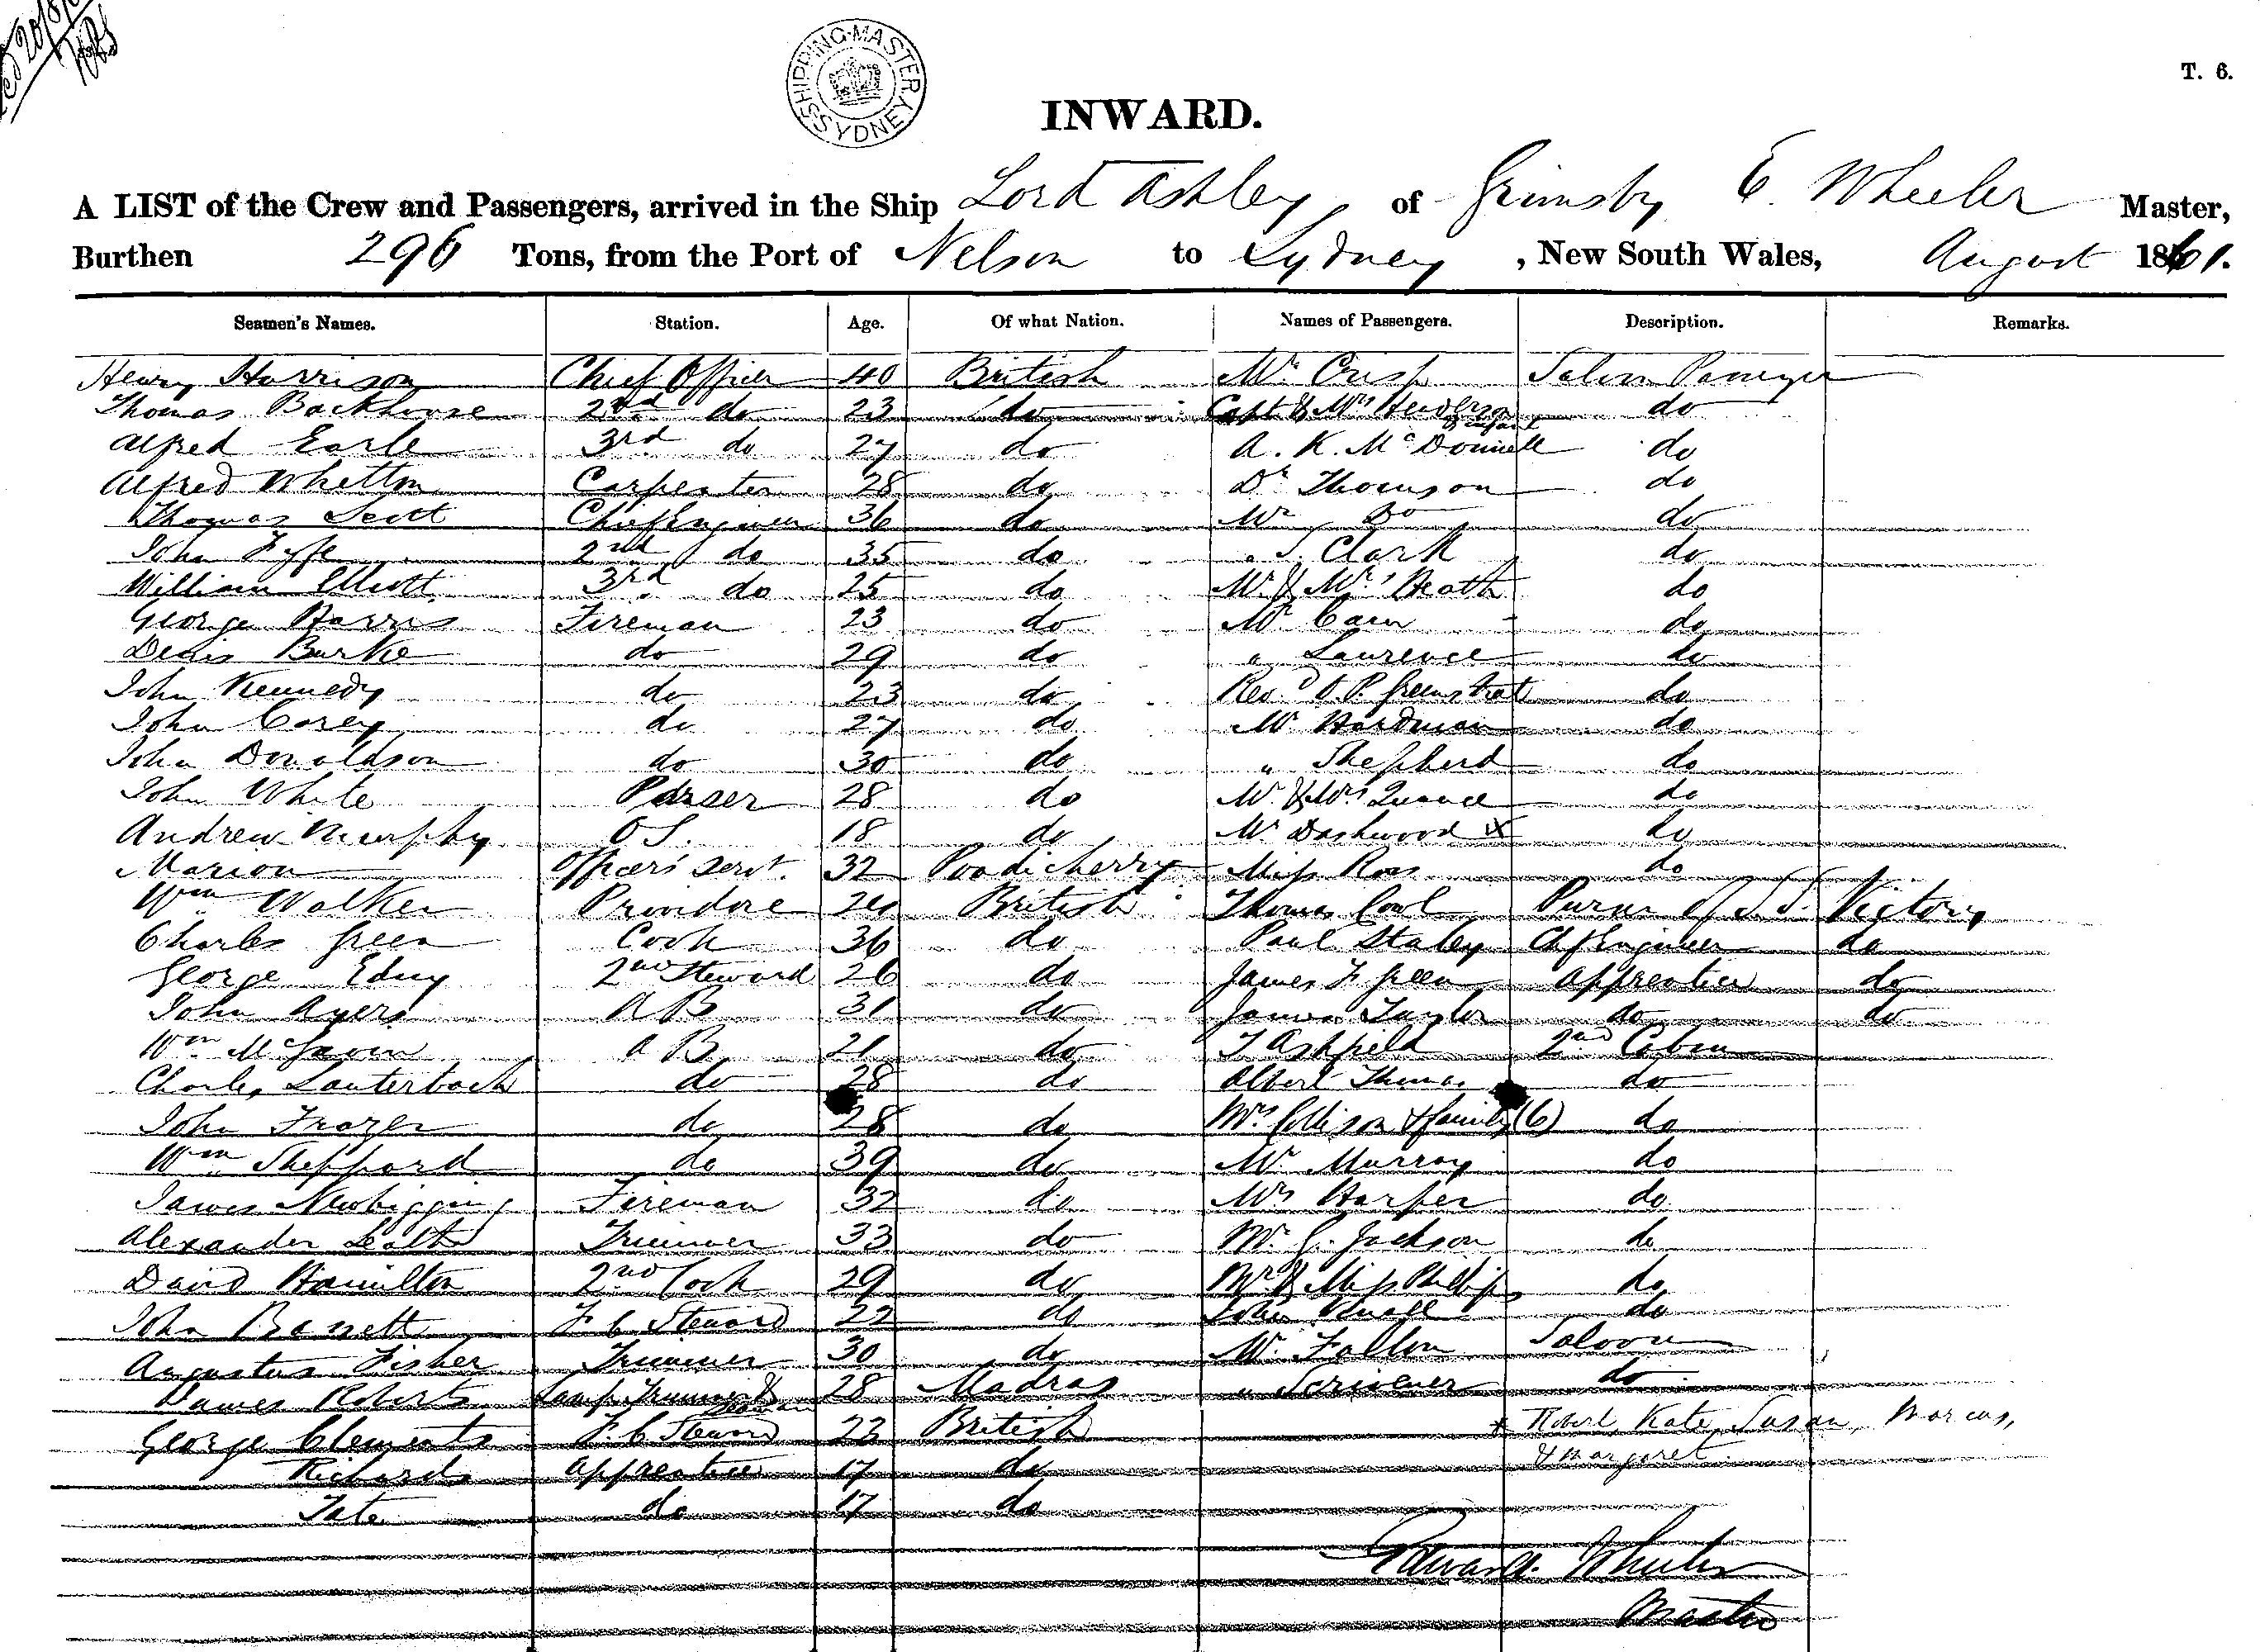 T. 6.
SHIPPING MASTER SYDNEY
INWARD.
A LIST of the Crew and Passengers, arrived in the Ship Lord Ashley, of Grimsby E. Wheeler Master,
Burthen 296 Tons, from the Port of Nelson to Sydney, New South Wales, August 1861.
Seamen's Names. Station. Age. Of what Nation. Names of Passengers. Description. Remarks.
Henry Harrison Chief Officer 40 British Mr. Crisp Saloon Passenger
Thomas Backhouse 2nd do 23 do Capt & Mrs Henderson do
& infant
Alfred Earle 3rd do 27 do A. K. McDonnell do
Alfred Whetton Carpenter 28 do Dr Thomson do
Thomas Scott Chief Engineer 36 do Mr Do do
John Fyffe 2nd do 35 do " Clark do
William Elliott 3rd do 25 do Mr & Mrs Heath do
George Harris Fireman 23 do Mr do
Denis Burke do 29 do " Laurence do
John Kennedy do 23 do Revd do
John Carey do 27 do Mr Hardman do
John Donaldson do 30 do " Shepherd do
John White Purser 28 do Mr & Mrs do
Andrew Murphy O S. 18 do Mr Dashwood do
Marion Officers' Servt. 32 Pondicherry Miss Ross do
Wm Walker Providore 24 British Thomas Purser of S.S. Victory
Charles Green Cook 36 do Paul Staley Chf Engineer do
George Edny 2nd Steward 26 do James F Green Apprentice do
John Ayers A B 31 do James Taylor do do
Wm A B 21 do T Ashfield 2nd Cabin
Charles Lauterbach do 28 do Albert Thomas do
John Frazer do 28 do Mrs & family (6) do
Wm Sheppard do 39 do Mr Murray do
James Newbigging Fireman 32 do Mrs Harper do
Alexander Trimmer 33 do Mr G. Jackson do
David Hamilton 2nd Cook 29 do Mr & Miss Phillips do
John Bassett F C Steward 22 do John do
Augustus Fisher Trimmer 30 do Mr. Fallon Saloon
James Roberts Lamp Trimmer & 28 Madras " Scrivener do
George Clements F. C Steward 23 British * Robert, Kate, Susan, Marcus,
Richards Apprentice 17 do & Margaret
Tate do 17 do
Edward Wheeler
Master